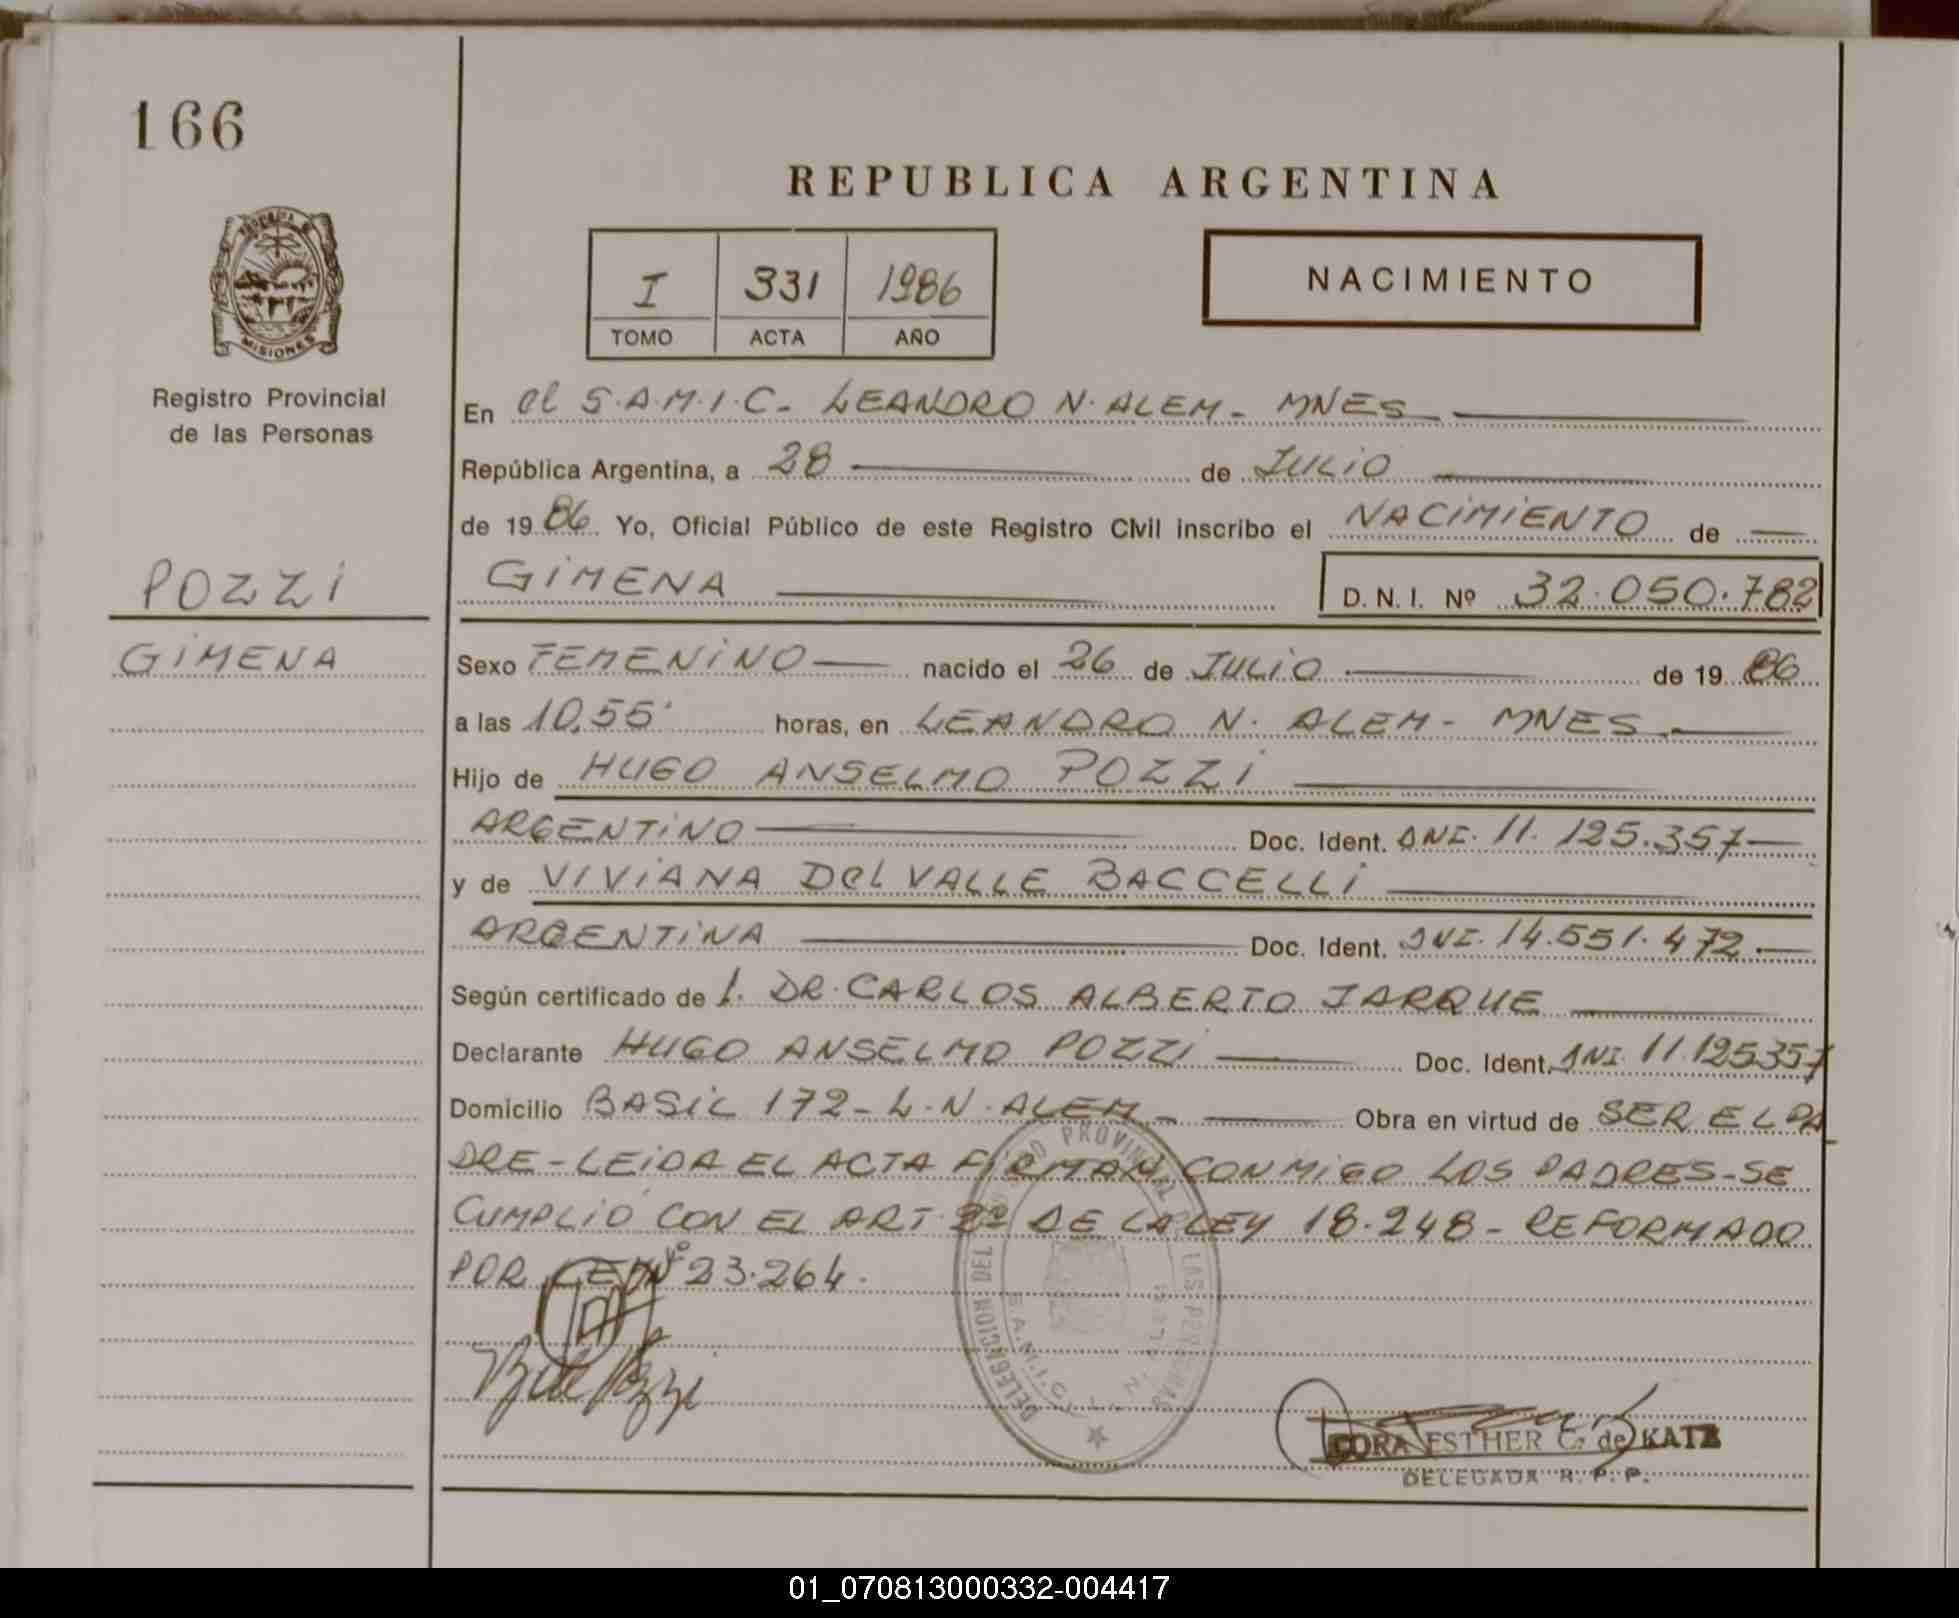 166
REPUBLICA ARGENTINA
I 331 1986
TOMO ACTA AÑO
NACIMIENTO
MISIONES
Registro Provincial
de las Personas
POZZI
GIMENA
En el S.A.M.I.C. LEANDRO N. ALEM - MNES
República Argentina, a 28 de JULIO
de 1986. Yo, Oficial Público de este Registro Civil inscribo el NACIMIENTO de
GIMENA D.N.I. Nº 32.050.782
Sexo FEMENINO nacido el 26 de JULIO de 1986
a las 10,55' horas, en LEANDRO N. ALEM - MNES
Hijo de HUGO ANSELMO POZZI
ARGENTINO Doc. Ident. DNI. 11.125.357
y de VIVIANA DEL VALLE BACCELLI
ARGENTINA Doc. Ident. DNI. 14.551.472
Según certificado de 1. DR. CARLOS ALBERTO JARQUE
Declarante HUGO ANSELMO POZZI Doc. Ident. DNI. 11.125357
Domicilio BASIL 172 - L.N. ALEM - Obra en virtud de SER EL PA
DRE - LEIDA EL ACTA FIRMAN CONMIGO LOS PADRES - SE
CUMPLIÓ CON EL ART. 2º DE LA LEY 18.248 - REFORMADO
POR LEY Nº 23.264.
DELEGACION DEL PROVINCIAL LAS PERSONAS
S.A.M.I.C. L. N. ALEM
CORA ESTHER C. de KATZ
DELEGADA R. P. P.
01_070813000332-004417